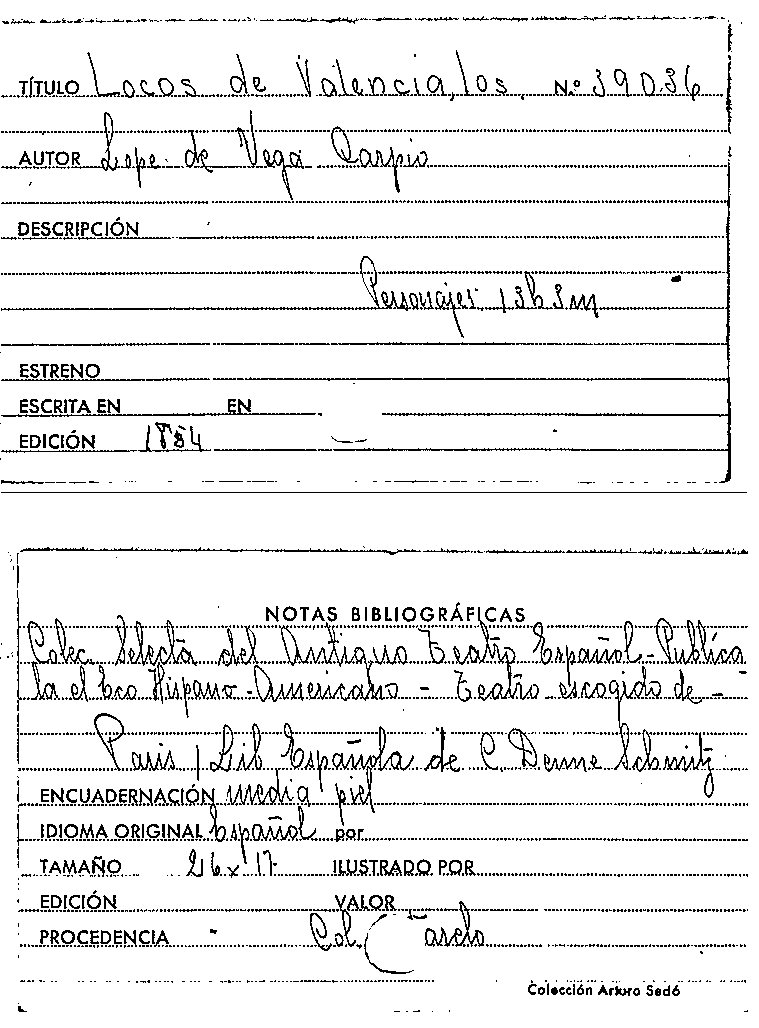 TÍTULO Locos de Valencia, los. Nº 39036
AUTOR Lope de Vega Carpio
DESCRIPCIÓN
Personajes 13h 3m
ESTRENO
ESCRITA EN EN
EDICIÓN 1854
NOTAS BIBLIOGRÁFICAS
Colec. Selecta del Antiguo Teatro Español - Publica
la el Eco Hispano-Americano - Teatro escogido de -
Paris / Lib Española de C. Denne Schmitz
ENCUADERNACIÓN media piel
IDIOMA ORIGINAL Español por
TAMAÑO 26 x 17 ILUSTRADO POR
EDICIÓN VALOR
PROCEDENCIA Col.
Colección Arturo Sedó